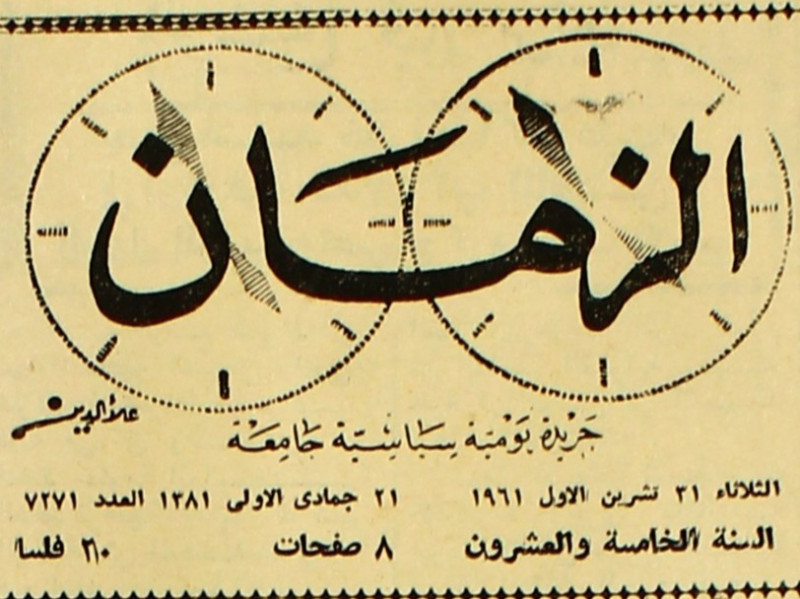 الزمان
علاءالدين
جَرِيْدة يَوْميّة سِيَاسِيّة جَامِعَة
الثلاثاء ٣١ تشرين الاول ١٩٦١ ٢١ جمادى الاولى ١٣٨١ العدد ٧٢٧١
السنة الخامسة والعشرون ٨ صفحات ٢٠ فلسا